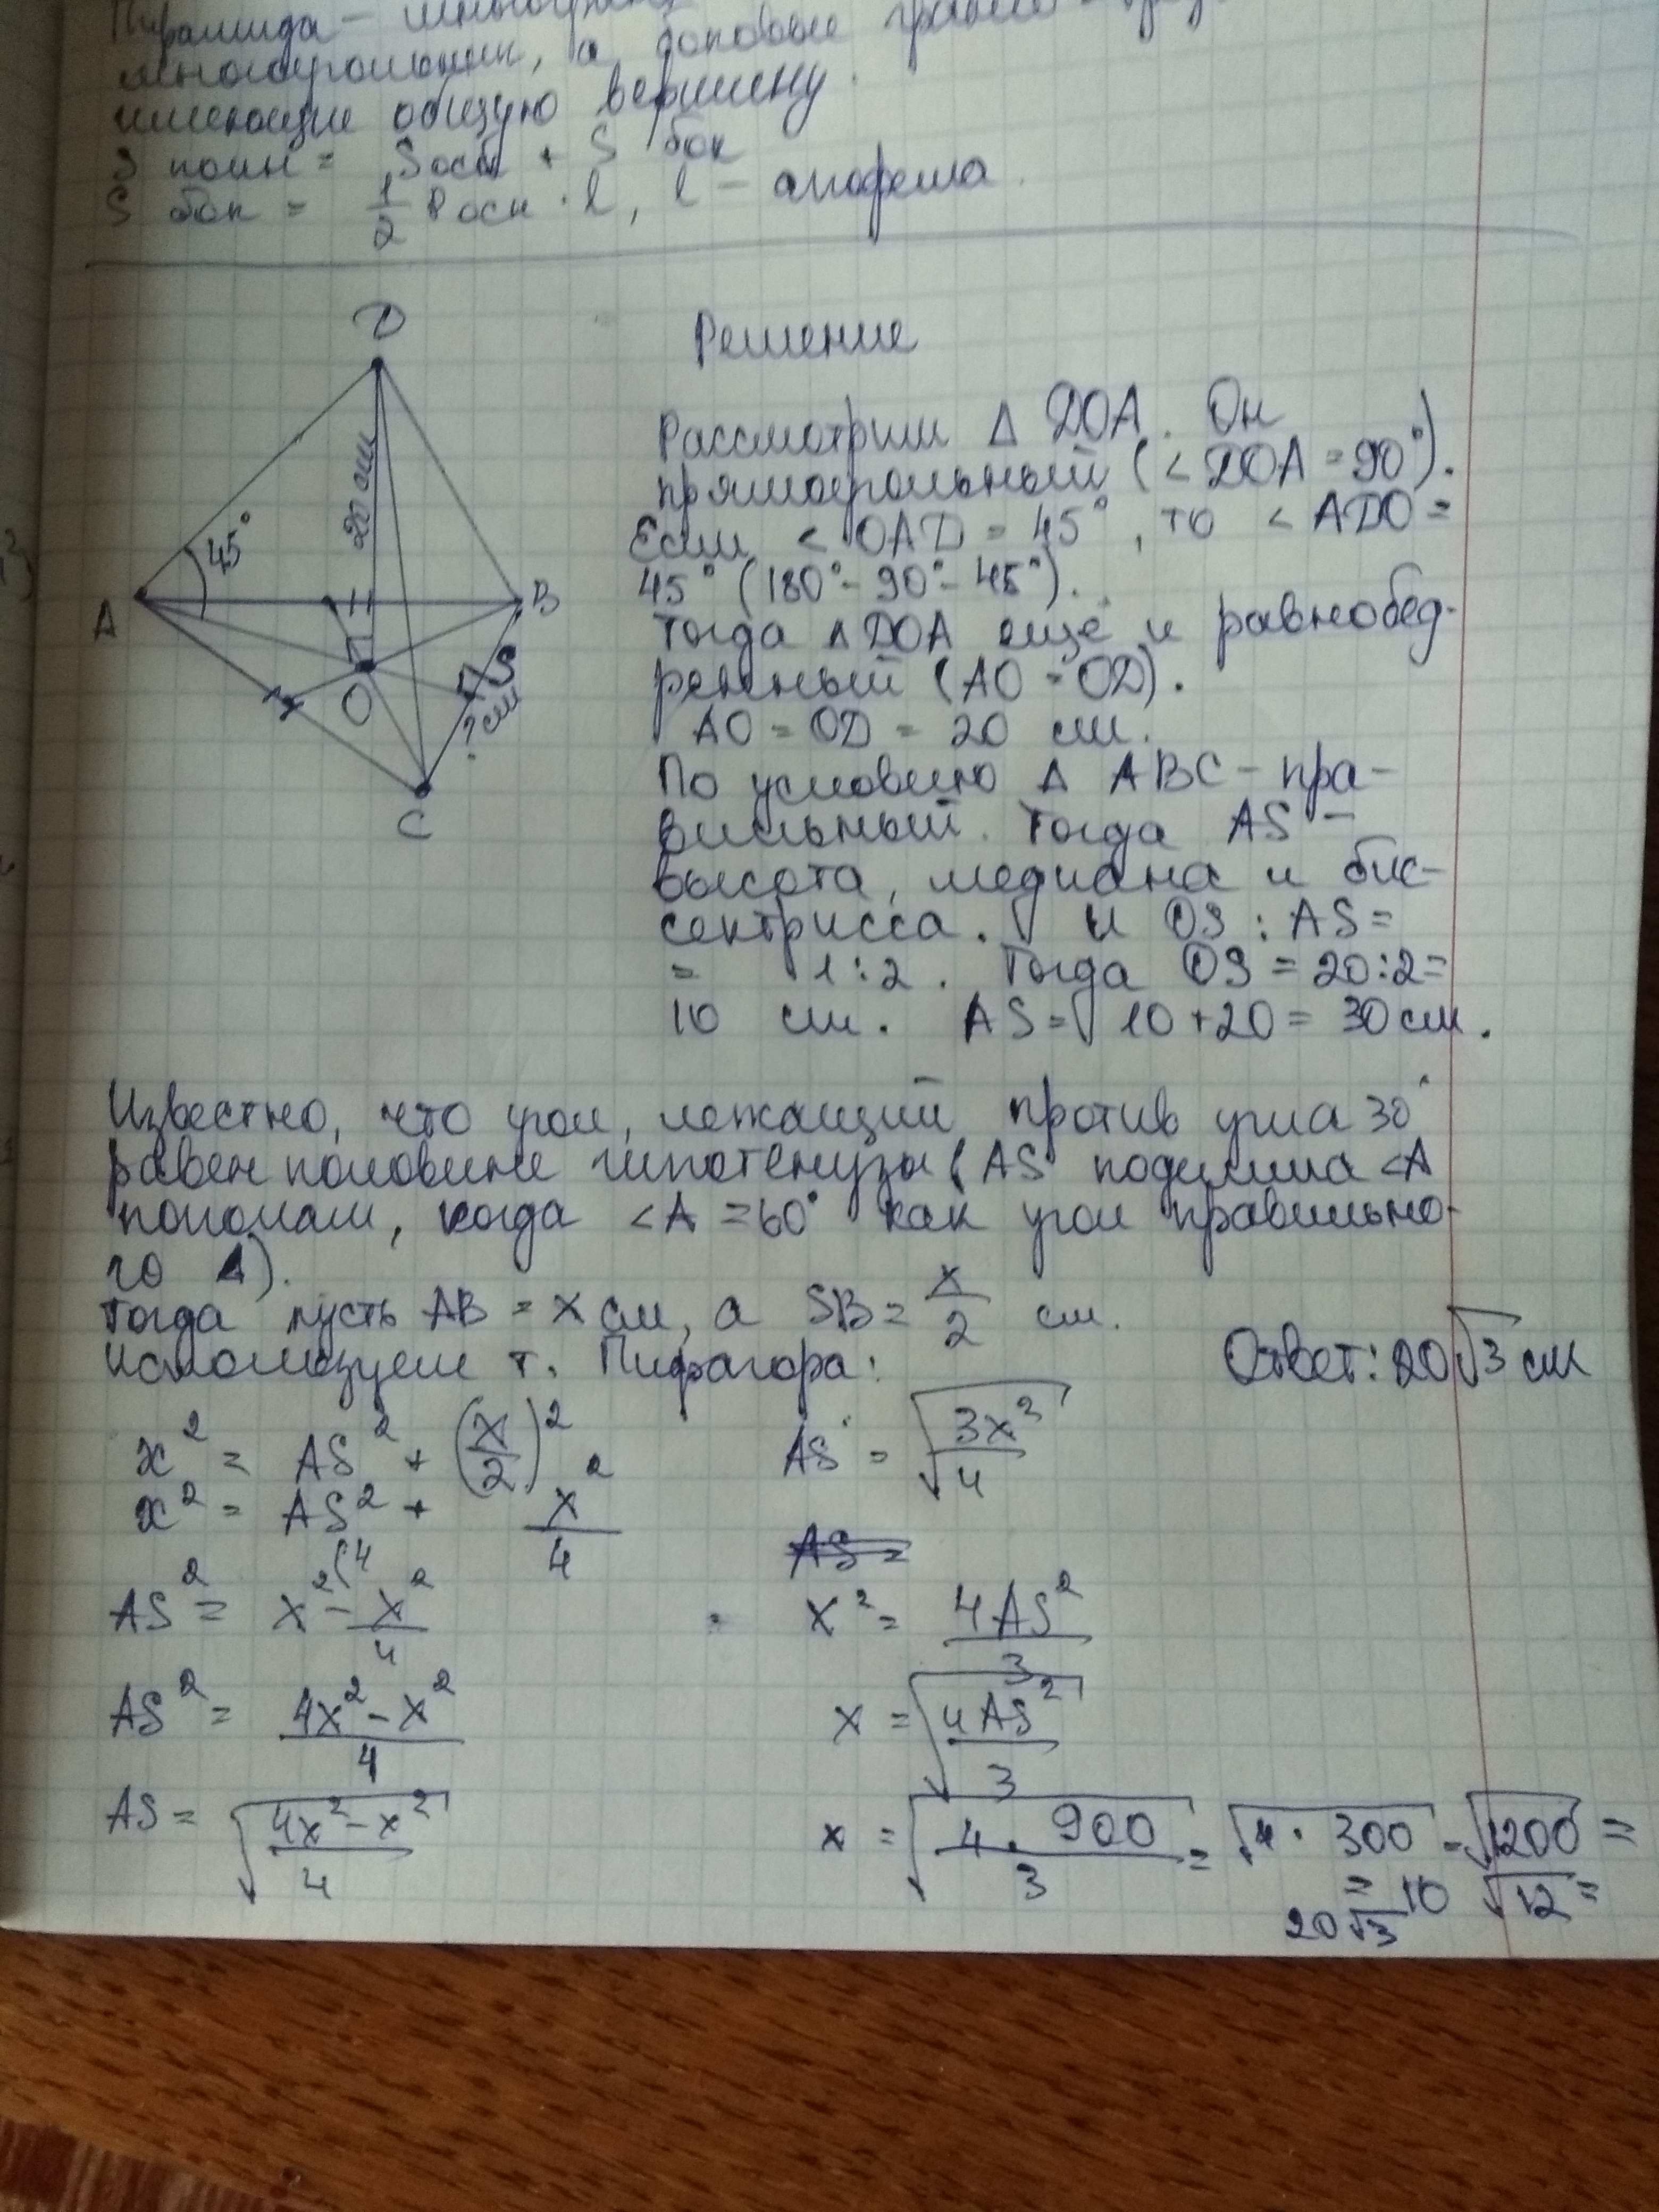 Пирамида –
многоугольник, а боковые грани –
имеющие общую вершину.
S полн = Sосн + S бок
S бок = 1/2 Pосн · l, l – апофема.
D
20 см
45°
A
B
S
O
? см
C
Решение
Рассмотрим Δ DOA. Он
прямоугольный (∠DOA = 90°).
Если ∠OAD = 45°, то ∠ADO =
45° (180° - 90° - 45°).
Тогда Δ DOA ещё и равнобед-
ренный (AO = OD).
AO = OD = 20 см.
По условию Δ ABC – пра-
вильный. Тогда AS –
высота, медиана и бис-
сектрисса. И OS : AS =
= 1:2. Тогда OS = 20:2=
10 см. AS = 10 + 20 = 30 см.
Известно, что угол, лежащий против угла 30°
равен половине гипотенузы (AS поделила ∠A
пополам, когда ∠A = 60° как угол правильно-
го Δ).
Тогда пусть AB = x см, а SB = x/2 см.
Используем т. Пифагора:
Ответ: 20√3 см
x² = AS² + (x/2)²
x² = AS² + x²/4
AS² = x²(4 - x²/4
AS² = (4x² - x²)/4
AS = √((4x² - x²)/4)
AS = √(3x²/4)
AS =
x² = 4AS²/3
x = √(4AS²/3)
x = √(4 · 900/3) = √(4 · 300) = √1200 =
= 10 √12 =
20√3